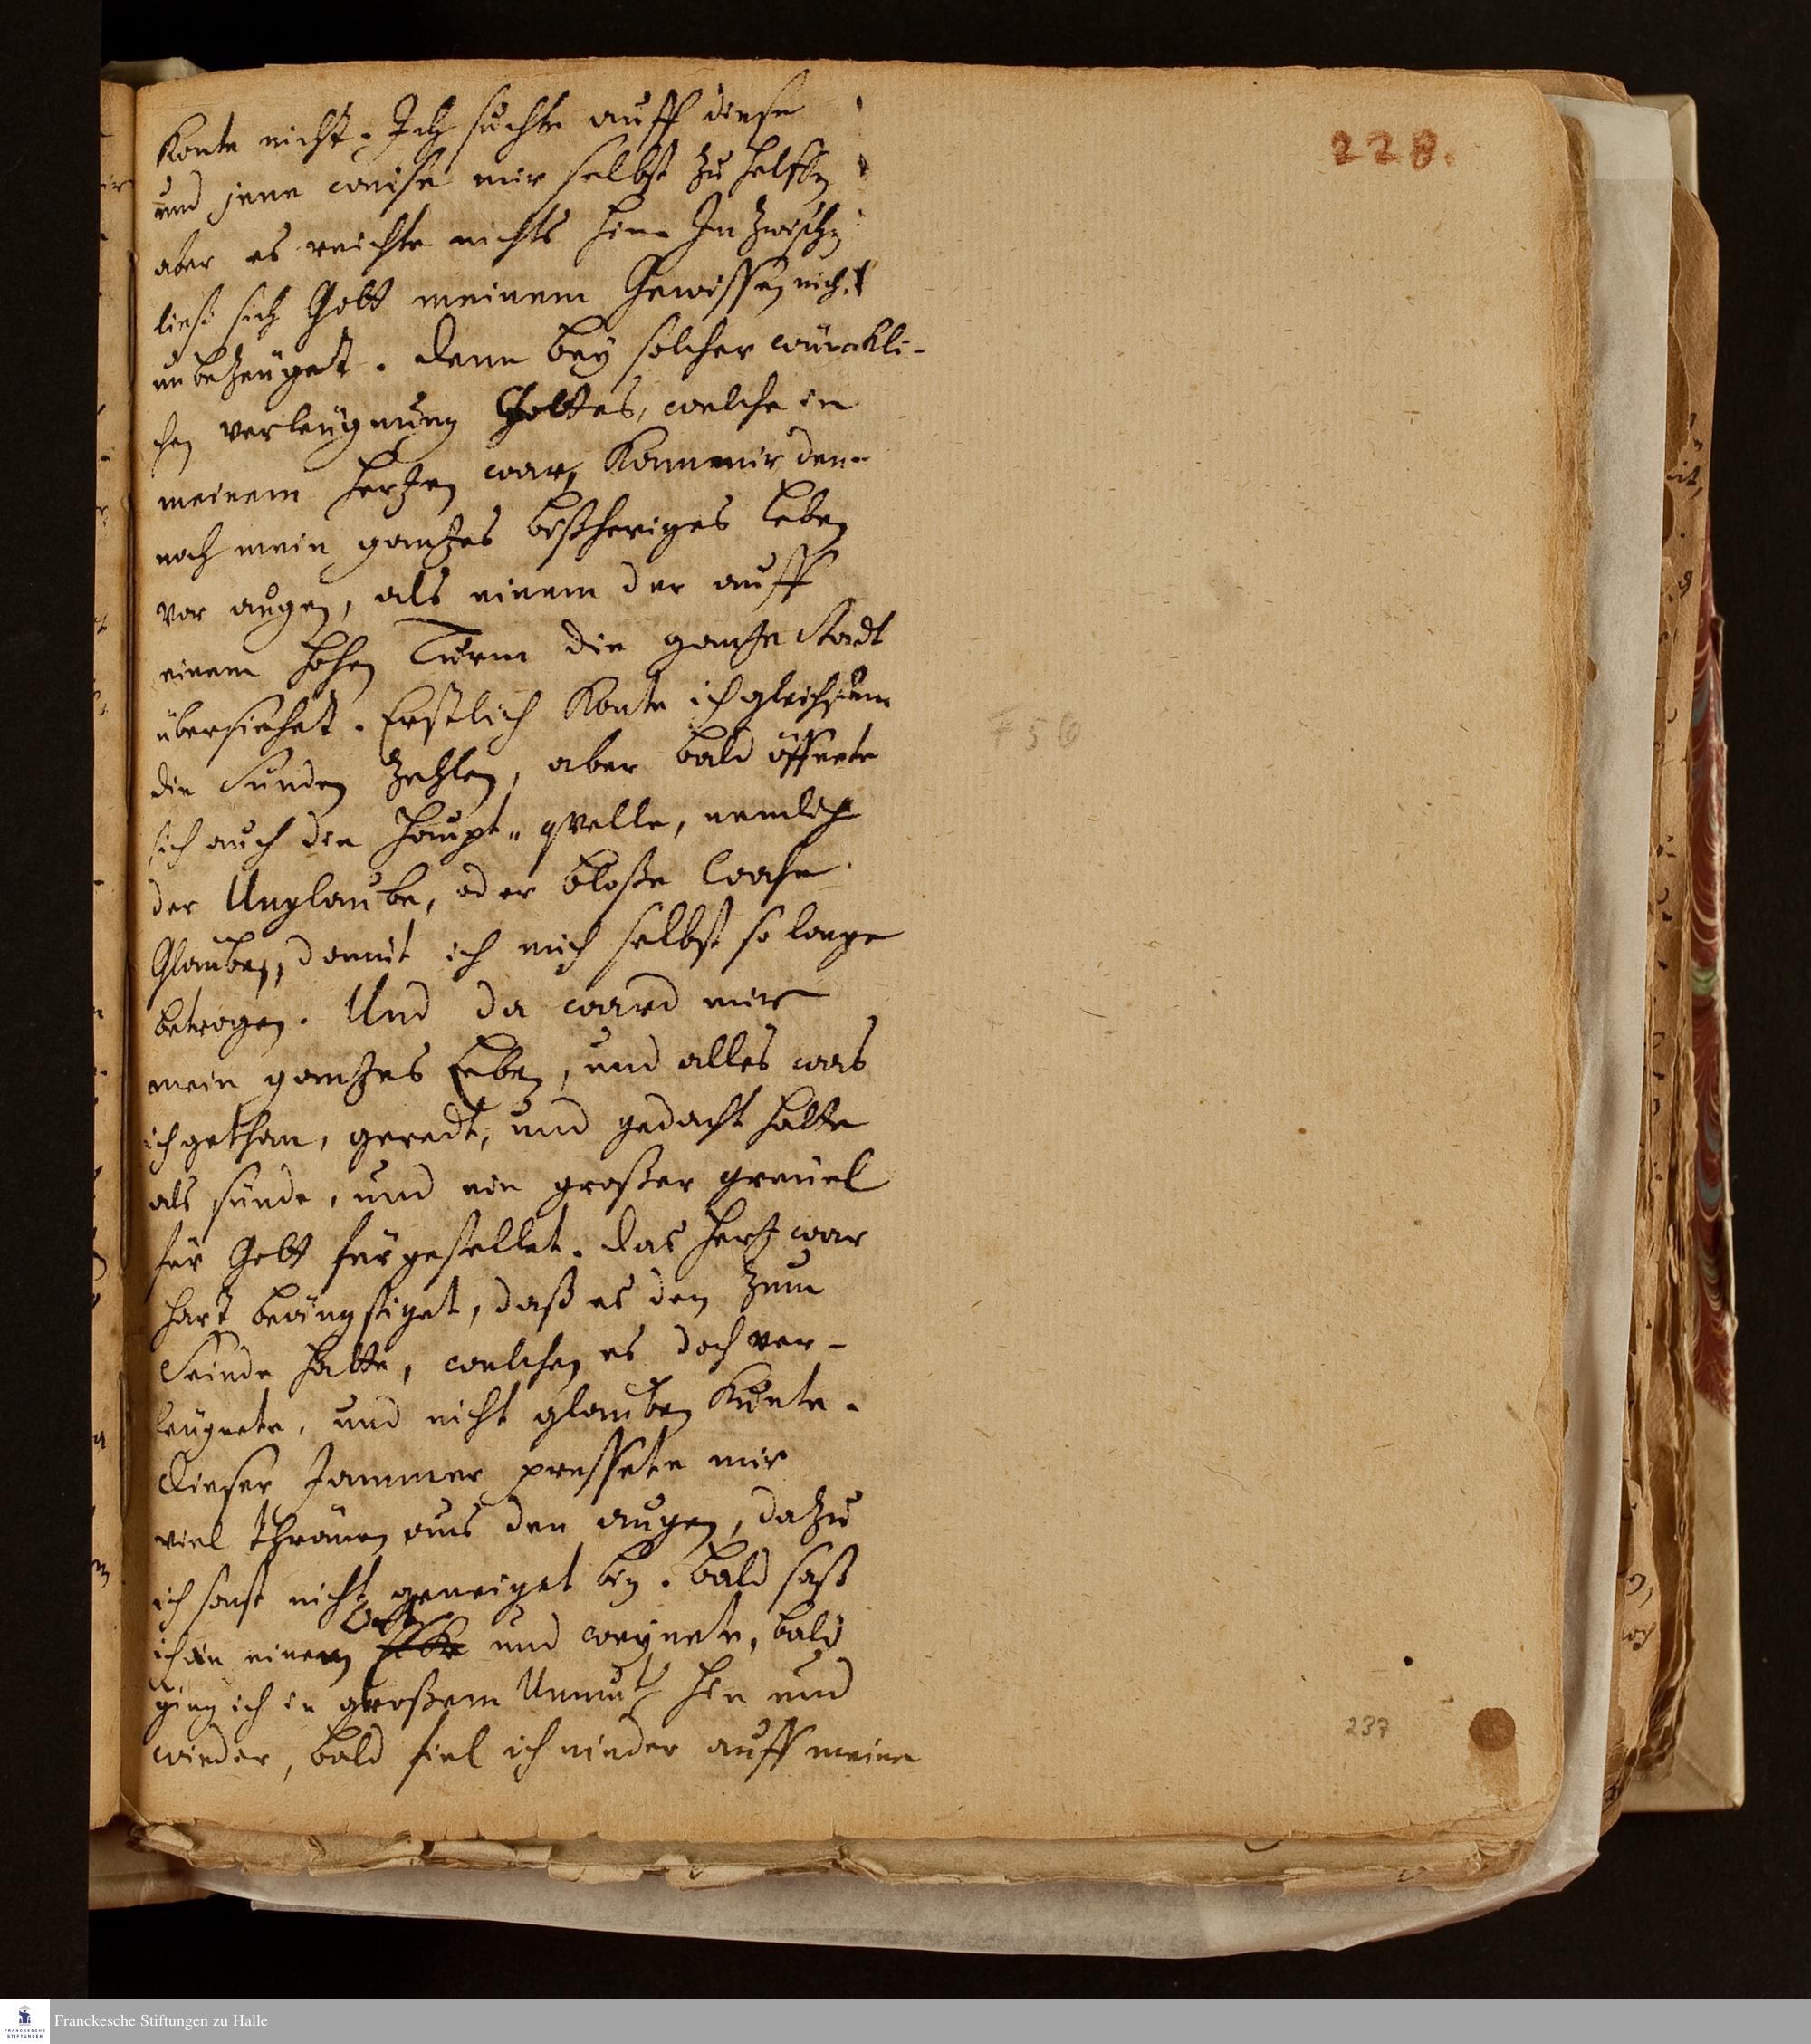 228.
konte nicht. Ich suchte auff diese
und jene weise mir selbst zu helffen
aber es reichte nichts hin. Inzwischen
ließ sich Gott meinem Gewissen nicht
unbezeuget. Denn bey solcher würckli-
chen verleugnung Gottes, welche in
meinem hertzen war, kam mir den-
noch mein gantzes bißheriges leben
vor augen, als einem der auff
einem hohen Turm die gantze Stadt
übersiehet. Erstlich konte ich gleichsam
die Sunden zehlen, aber bald öffnete
sich auch die Haupt-qvelle, nemlich
der Unglaube, oder bloße Wahn-
Glaube, damit ich mich selbst so lange
betrogen. Und da ward mir
mein gantzes Leben, und alles was
ich gethan, geredt, und gedacht hatte
als sünde, und ein großer greuel
für Gott fürgestellet. Das hertz war
hart beängstiget, daß es den zum
Feinde hatte, welchen es doch ver-
leugnete, und nicht glauben konte.
Dieser Jammer pressete mir
viel thränen aus den augen, dazu
ich sonst nicht geneiget bin. Bald saß
Ort
ich an einem und weynete, bald
ging ich in großem Unmuth hin und
wieder, bald fiel ich nieder auff meine
F56
237
Franckesche Stiftungen zu Halle
FRANCKESCHE
STIFTUNGEN